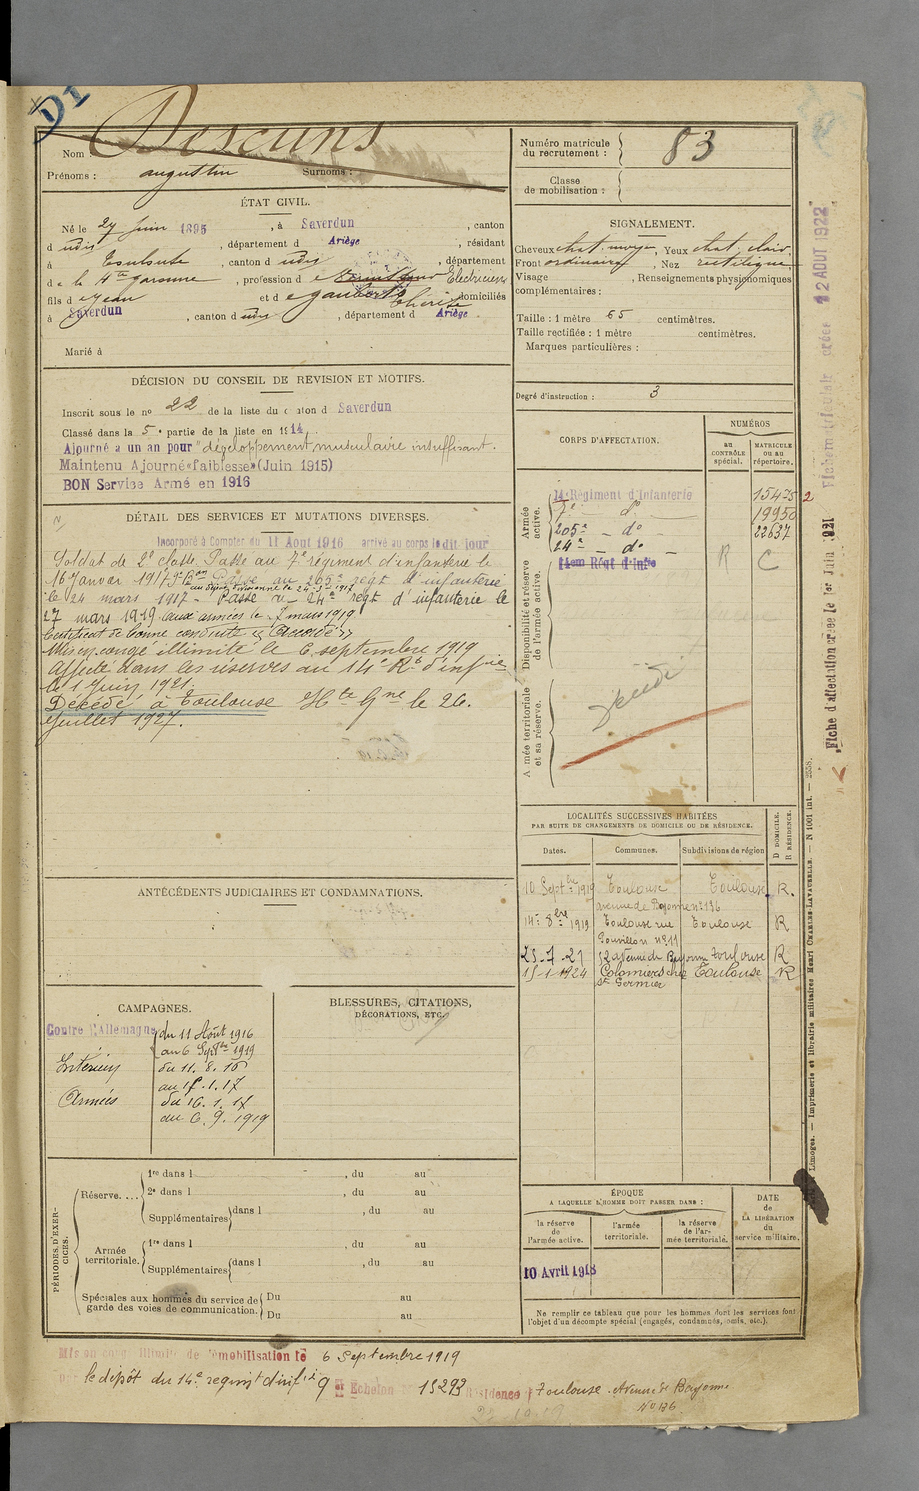 D1
Nom : Descuns
Prénoms : augustin Surnoms :
ÉTAT CIVIL.
Né le 27 juin 1895, à Saverdun, canton
d udit, département d Ariège, résidant
à Toulouse, canton d udit, département
de la Hte Garonne, profession d Électricien
fils d e Jean et d e Gaubert Thérèse domiciliés
à Saverdun, canton d udit, département d Ariège.
Marié à
DÉCISION DU CONSEIL DE REVISION ET MOTIFS.
Inscrit sous le no 22 de la liste du canton d Saverdun
Classé dans la 5e partie de la liste en 1914
Ajourné a un an pour "développement musculaire insuffisant.
Maintenu Ajourné «faiblesse» (Juin 1915)
BON Service Armé en 1916
DÉTAIL DES SERVICES ET MUTATIONS DIVERSES.
Incorporé à Compter du 11 Aout 1916 arrivé au corps le dit jour
Soldat de 2e classe. Passé au 7e régiment d'infanterie le
16 Janvier 1917. Passé au 205e régt d'infanterie
le 24 mars 1917 - Passé au 24e régt d'infanterie le
27 mars 1919. aux armées le 7 mars 1919
Certificat de bonne conduite "Accordé"
Mis en congé illimité le 6 septembre 1919
Affecté dans les réserves au 14e Rt d'infie
le 1 Juin 1921.
Décédé à Toulouse Hte Gne le 26.
juillet 1927.
ANTÉCÉDENTS JUDICIAIRES ET CONDAMNATIONS.
CAMPAGNES.
Contre l'Allemagne du 11 Août 1916
au 6 Septbre 1919
Intérieur du 11.8.16
au 15.1.17
Armées du 16.1.17
au 6.9.1919
BLESSURES, CITATIONS,
DÉCORATIONS, ETC.
PÉRIODES D'EXERCICES.
Réserve.... 1re dans l , du au
2e dans l , du au
Supplémentaires dans l , du au
Armée territoriale. 1re dans l , du au
Supplémentaires dans l , du au
Spéciales aux hommes du service de garde des voies de communication. Du au
Du au
Numéro matricule
du recrutement : 83
Classe
de mobilisation :
SIGNALEMENT.
Cheveux chat. moyen, Yeux chat. clair
Front ordinaire, Nez rectiligne
Visage , Renseignements physiognomiques
complémentaires :
Taille : 1 mètre 65 centimètres.
Taille rectifiée : 1 mètre centimètres.
Marques particulières :
Degré d'instruction : 3
CORPS D'AFFECTATION.
NUMÉROS
au
CONTRÔLE
spécial.
MATRICULE
ou au
répertoire.
Armée active.
14e Régiment d'Infanterie 15475 2
7e - do - 19950
205e - do 22637
24e - do
Disponibilité et réserve de l'armée active.
14em Regt d'Infie R C
Armée territoriale et sa réserve.
Décédé
LOCALITÉS SUCCESSIVES HABITÉES
PAR SUITE DE CHANGEMENTS DE DOMICILE OU DE RÉSIDENCE.
Dates. Communes. Subdivisions de région
D DOMICILE.
R RÉSIDENCE.
10 Septbre 1919 Toulouse Toulouse R.
avenue de Bayonne no 136
14 8bre 1919 Toulouse rue Toulouse R
Pouvillon no 11
25-7-21 52 avenue de Bayonne Toulouse R
15-1-1924 Colomiers Toulouse R
St Germier
ÉPOQUE
A LAQUELLE L'HOMME DOIT PASSER DANS :
DATE
de
LA LIBÉRATION
du
service militaire.
la réserve
de
l'armée active.
l'armée
territoriale.
la réserve
de l'armée territoriale.
10 Avril 1918
Ne remplir ce tableau que pour les hommes dont les services font
l'objet d'un décompte spécial (engagés, condamnés, omis, etc.).
Mis en congé illimité de démobilisation le 6 Septembre 1919
le dépôt du 14e regimt d'infie 9
er Echelon 15293 Résidence Toulouse. Avenue de Bayonne
No 136
12 AOUT 1922
Fiche d'affectation créée le 1er Juin 1921
Limoges. — Imprimerie et librairie militaires Henri CHARLES-LAVAUZELLE. — N 1001 int. — 2558.